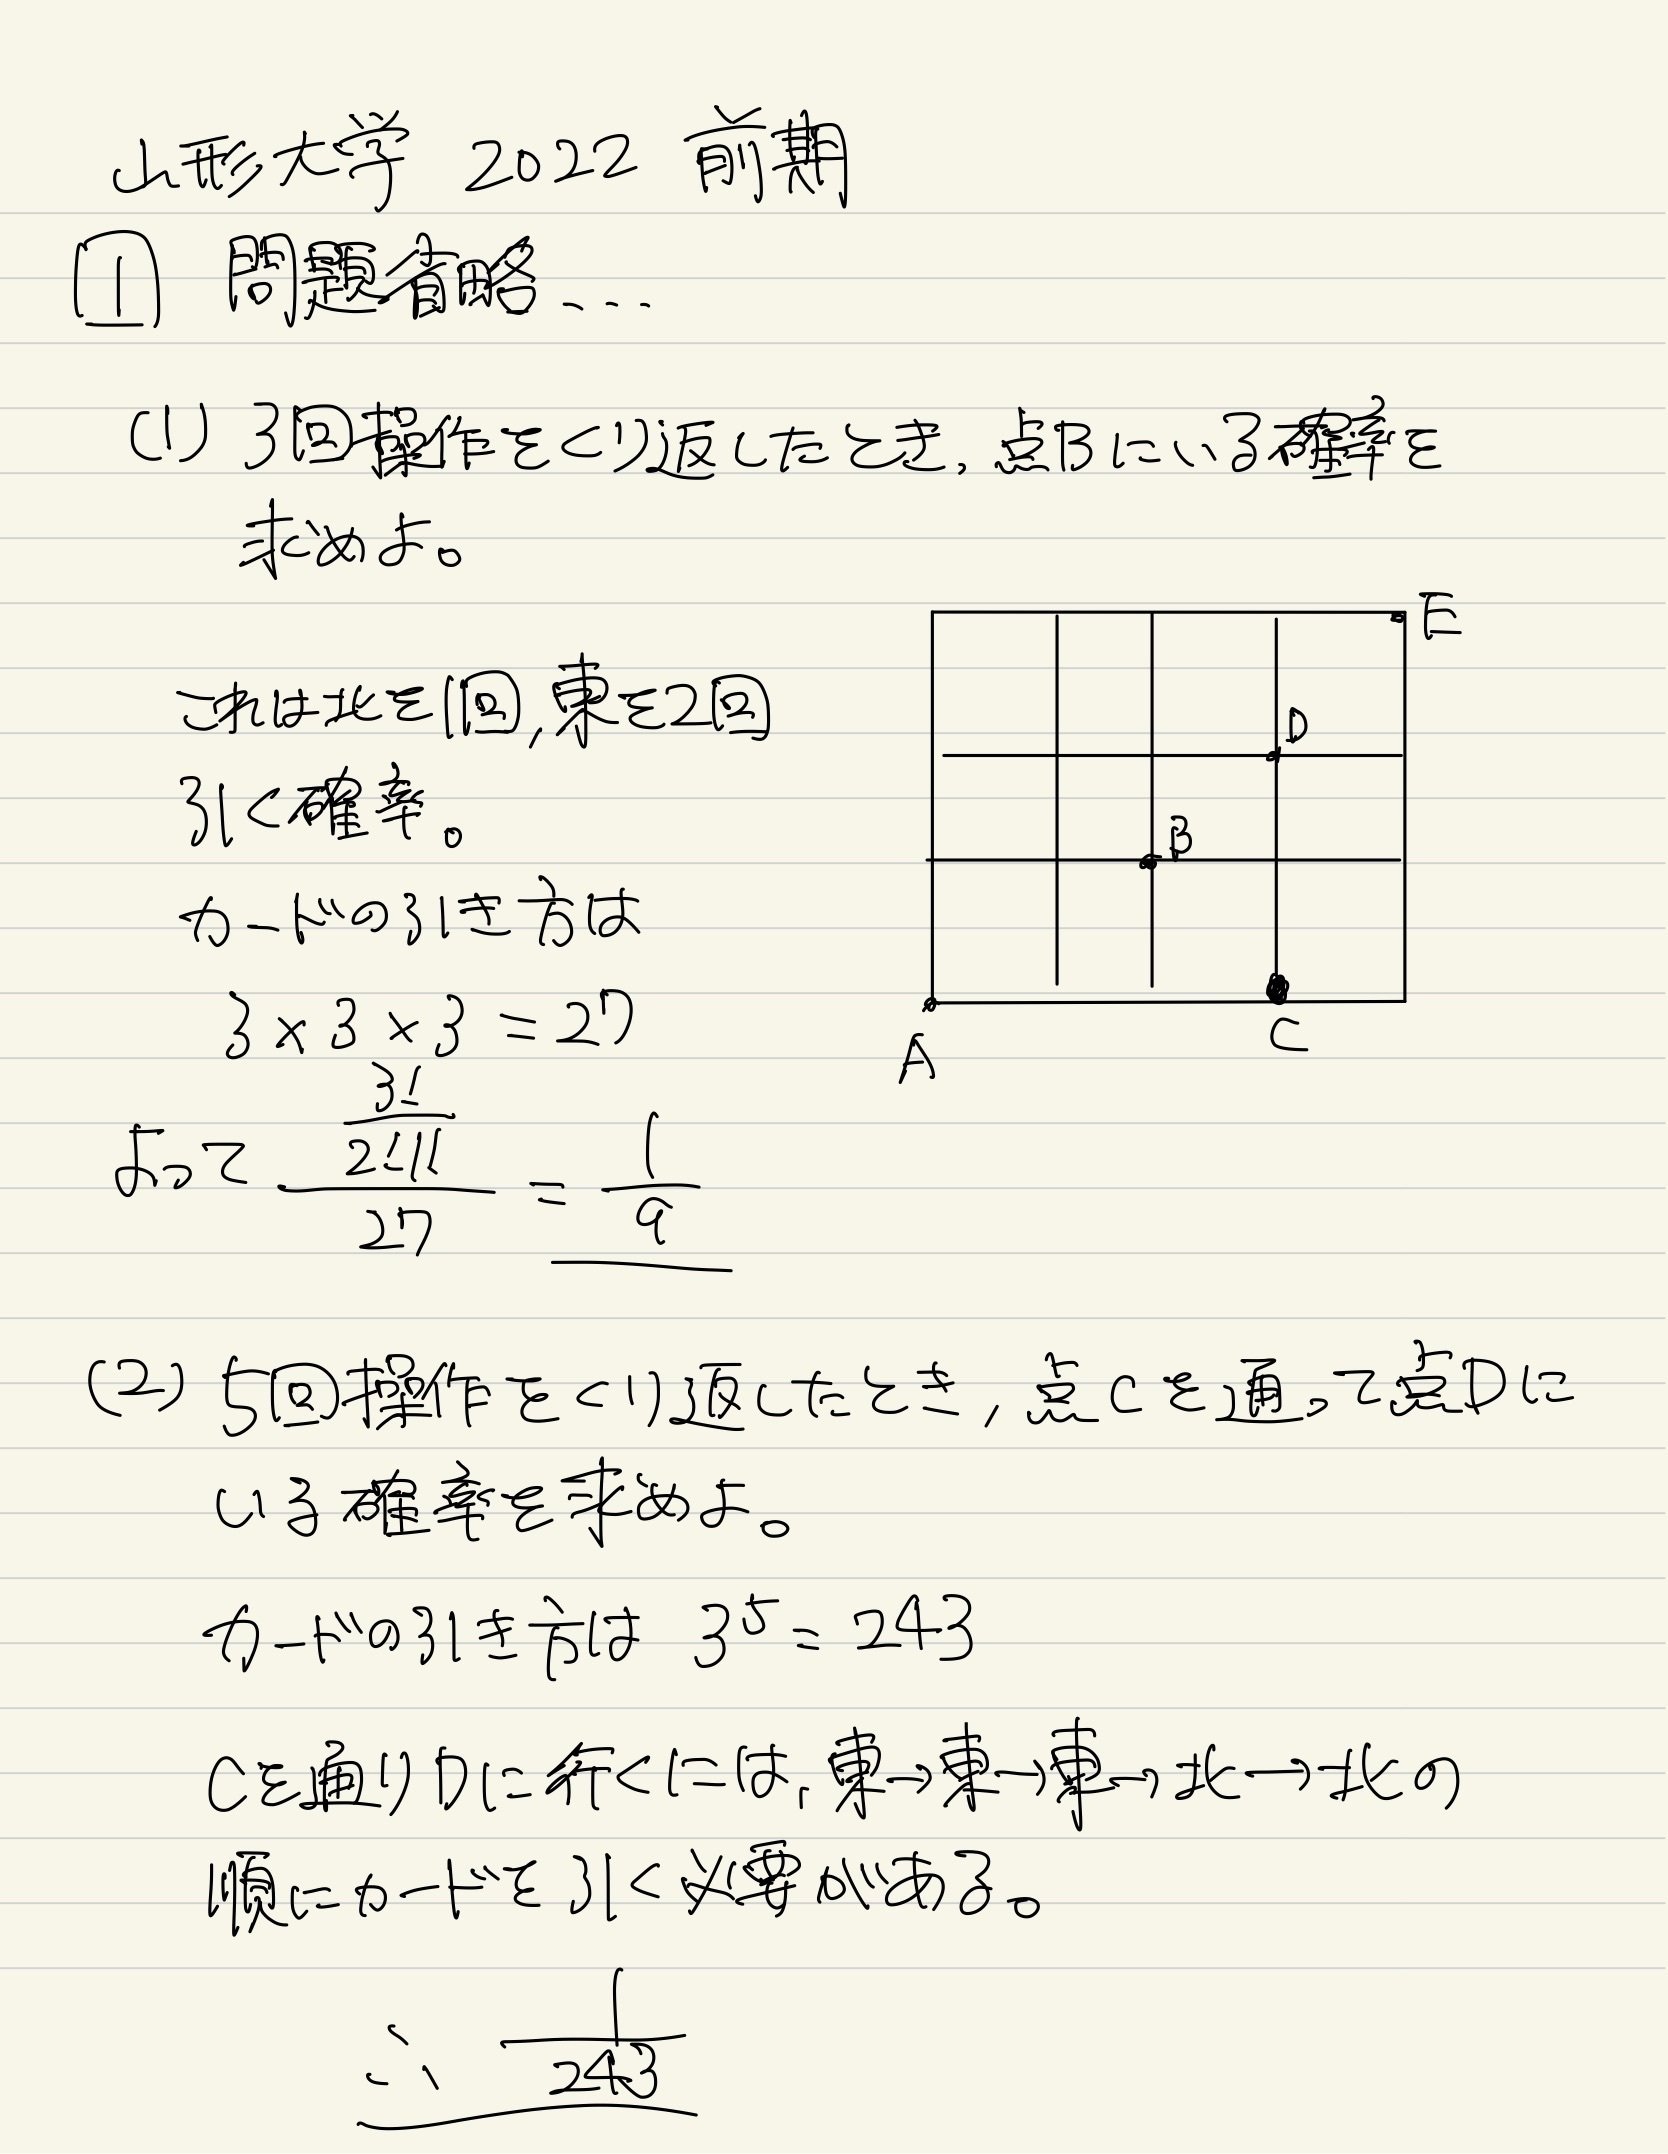 山形大学 2022 前期
1 問題省略...
(1) 3回操作をくり返したとき, 点Bにいる確率を
求めよ。
これは北を1回, 東を2回
引く確率。
カードの引き方は
3 × 3 × 3 = 27
よって \frac{\frac{3!}{2!1!}}{27} = \frac{1}{9}
E
D
B
A
C
(2) 5回操作をくり返したとき, 点Cを通って点Dに
いる確率を求めよ。
カードの引き方は 3^5 = 243
Cを通りDに行くには, 東→東→東→北→北の
順にカードを引く必要がある。
∴ \frac{1}{243}